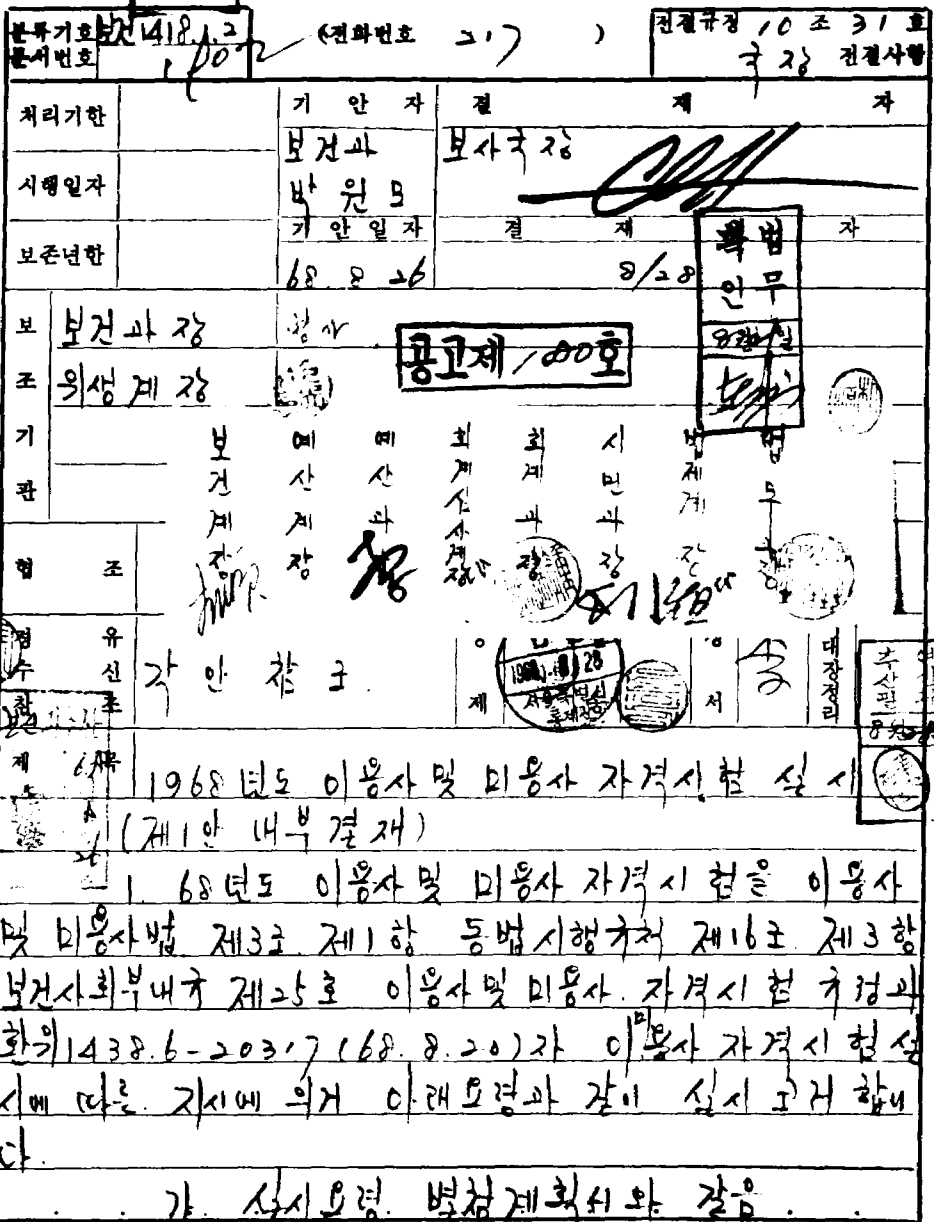 분류기호 보건 1418.1.2
문서번호
(전화번호 217 )
전결규정 10 조 31 호
국장 전결사항
처리기한
기 안 자
결 재 자
보건과
보사국장
시행일자
박 원 모
기 안 일 자
결 재 자
보존년한
68. 8 26
8/28
법무
8월 일
보 조 기 관
보건과장
위생계장
공고제 100호
보건계장
예산계장
예산과
회계심사계장
회계과장
시민과장
법제계장
법무
협 조
경유
수신
참조
각 안 참조
8 28
대장정리
제 목
1968년도 이용사 및 미용사 자격시험 실시
(제1안 내부결재)
1. 68년도 이용사 및 미용사 자격시험을 이용사
및 미용사법 제3조 제1항 동법시행규칙 제16조 제3항
보건사회부내규 제25호 이용사 및 미용사 자격시험 규정과
환위1438.6-20317 (68. 8. 20)자 이미용사 자격시험 실
시에 따른 지시에 의거 아래요령과 같이 실시 코저 합니
다.
가. 실시요령 별첨계획서와 같음